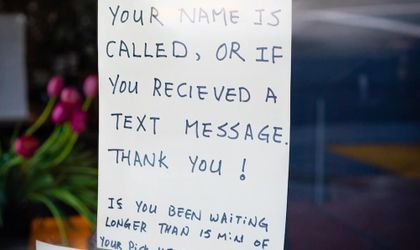 YOUR NAME IS
CALLED, OR IF
YOU RECIEVED A
TEXT MESSAGE.
THANK YOU!
IF YOU BEEN WAITING
LONGER THAN 15 MIN OF
YOUR PICK